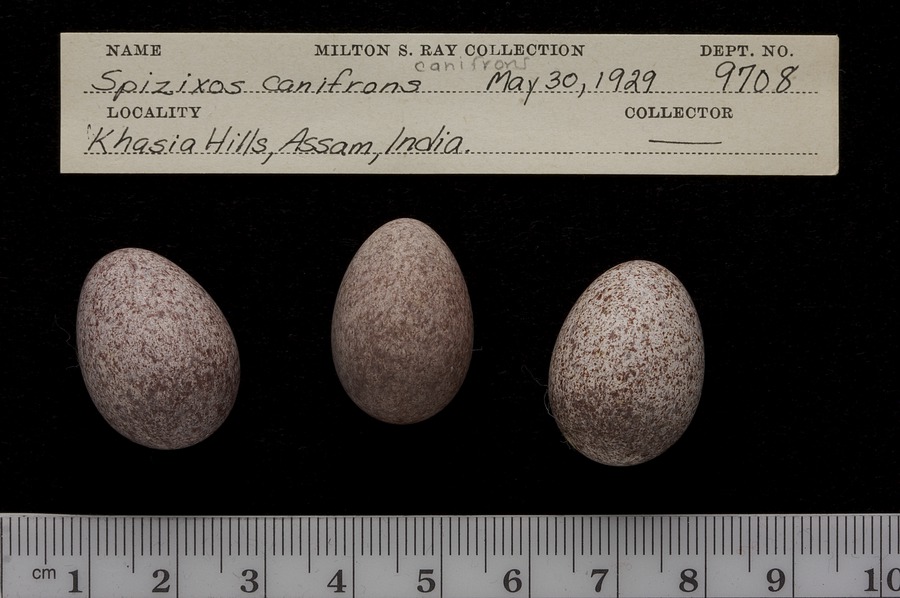 NAME MILTON S. RAY COLLECTION DEPT. NO.
canifrons
Spizixos canifrons May 30, 1929 9708
LOCALITY COLLECTOR
Khasia Hills, Assam, India. —
cm 1 2 3 4 5 6 7 8 9 10